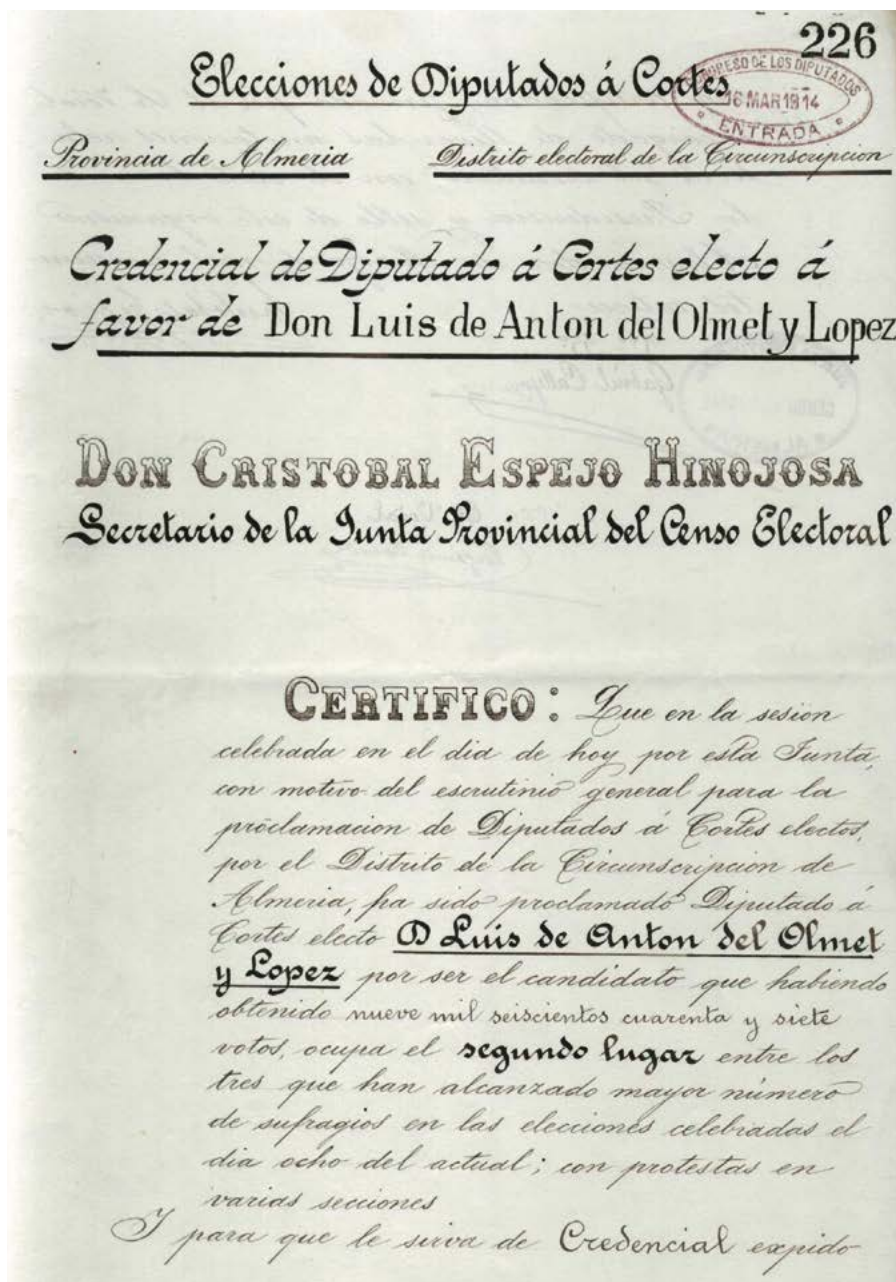 226
Elecciones de Diputados á Cortes
CONGRESO DE LOS DIPUTADOS
16 MAR 1914
ENTRADA
Provincia de Almeria Distrito electoral de la Circunscripcion
Credencial de Diputado á Cortes electo á
favor de Don Luis de Anton del Olmet y Lopez
DON CRISTOBAL ESPEJO HINOJOSA
Secretario de la Junta Provincial del Censo Electoral
CERTIFICO: Que en la sesion
celebrada en el dia de hoy por esta Junta,
con motivo del escrutinio general para la
proclamacion de Diputados á Cortes electos,
por el Distrito de la Circunscripcion de
Almeria, ha sido proclamado Diputado á
Cortes electo D Luis de Anton del Olmet
y Lopez por ser el candidato que habiendo
obtenido nueve mil seiscientos cuarenta y siete
votos, ocupa el segundo lugar entre los
tres que han alcanzado mayor número
de sufragios en las elecciones celebradas el
dia ocho del actual; con protestas en
varias secciones
Y para que le sirva de Credencial expido